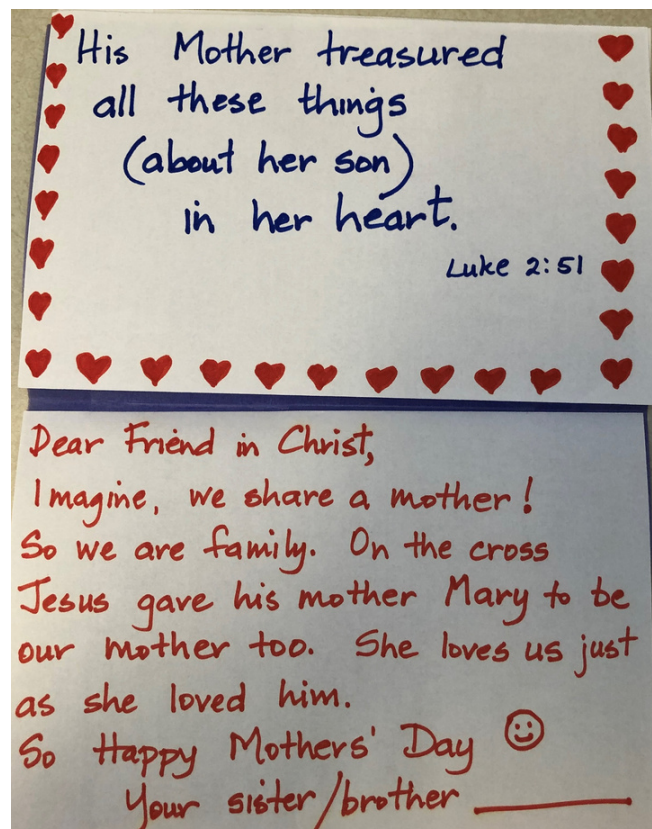 His Mother treasured
all these things
(about her son)
in her heart.
Luke 2:51
Dear Friend in Christ,
Imagine, we share a mother!
So we are family. On the cross
Jesus gave his mother Mary to be
our mother too. She loves us just
as she loved him.
So Happy Mothers' Day ☺
Your sister/brother ________